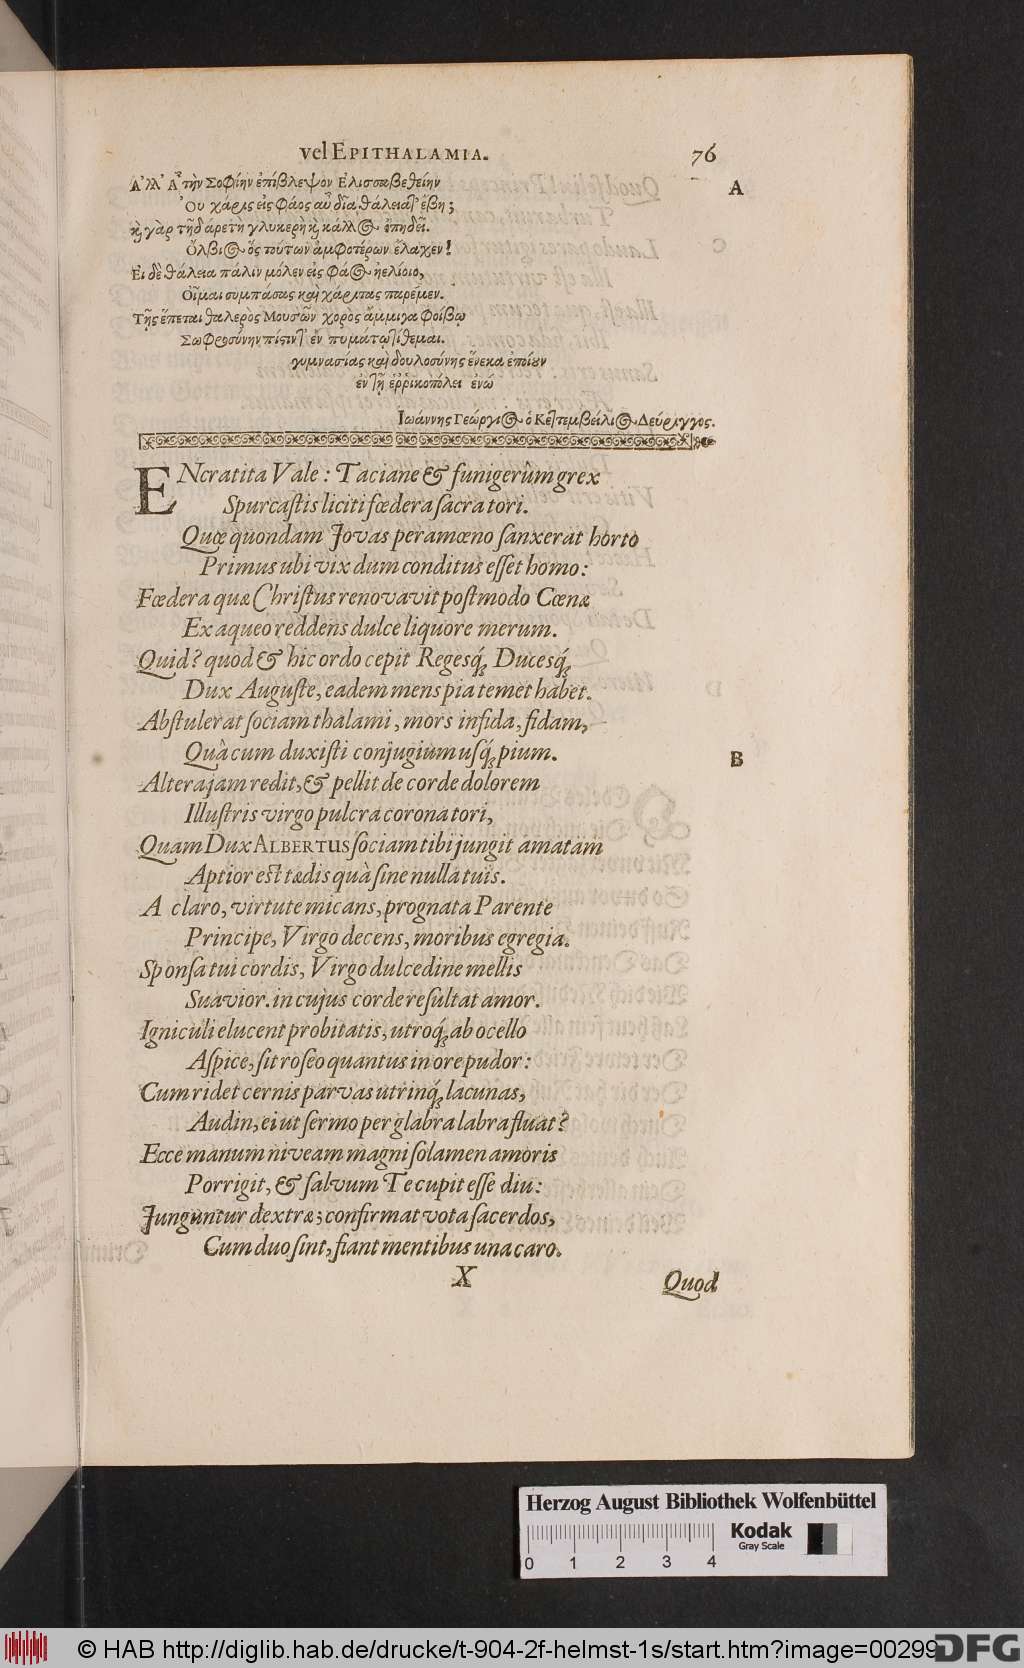 vel EPITHALAMIA. 76
Α᾿λλ᾿ ἄγε τὴν Σοφίην ἐπίβλεψον Ἐλισσαβεθείην A
Οὐ χάρις εἰς φάος αὖ δῖα θάλεια τ᾿ ἔβη;
καὶ γὰρ τῇδ᾿ ἀρετὴ γλυκερὴ καὶ κάλλος ἐπηδεῖ.
Ὄλβιος ὃς τούτων ἀμφοτέρων ἔλαχεν!
Εἰ δὲ θάλεια πάλιν μόλεν εἰς φάος ἠελίοιο,
Οἶμαι συμπάσας καὶ χάριτας παρέμεν.
Τῇς ἕπεται θαλερὸς Μουσῶν χορὸς ἄμμιγα Φοίβῳ
Σωφροσύνην πίσιν τ᾿ ἐν πυμάτῳ τίθεμαι.
γυμνασίας καὶ δουλοσύνης ἕνεκα ἐποίουν
ἐν τῇ ἑῤῥικοπόλει ἐνώ
Ἰωάννης Γεώργιος ὁ Κετεμβείλιος Δεύριγγος.
ENcratita Vale: Taciane & funigerûm grex
Spurcastis liciti fœdera sacra tori.
Quæ quondam Jovas peramœno sanxerat horto
Primus ubi vix dum conditus esset homo:
Fœdera quæ Christus renovavit postmodo Cœnæ
Ex aqueo reddens dulce liquore merum.
Quid? quod & hic ordo cepit Regesq́; Ducesq́;
Dux Auguste, eadem mens pia temet habet.
Abstulerat sociam thalami, mors infida, fidam,
Quâ cum duxisti conjugium usq́; pium. B
Altera jam redit, & pellit de corde dolorem
Illustris virgo pulcra corona tori,
Quam Dux ALBERTUS sociam tibi jungit amatam
Aptior est tædis quà sine nulla tuis.
A claro, virtute micans, prognata Parente
Principe, Virgo decens, moribus egregia.
Sponsa tui cordis, Virgo dulcedine mellis
Suavior. in cujus corde resultat amor.
Igniculi elucent probitatis, utroq́; ab ocello
Aspice, sit roseo quantus in ore pudor:
Cum ridet cernis parvas utrinq́; lacunas,
Audin, ei ut sermo per glabra labra fluat?
Ecce manum niveam magni solamen amoris
Porrigit, & salvum Te cupit esse diu:
Junguntur dextræ; confirmat vota sacerdos,
Cum duo sint, fiant mentibus una caro.
X Quod
Herzog August Bibliothek Wolfenbüttel
0 1 2 3 4
Kodak
Gray Scale
© HAB http://diglib.hab.de/drucke/t-904-2f-helmst-1s/start.htm?image=00299
DFG